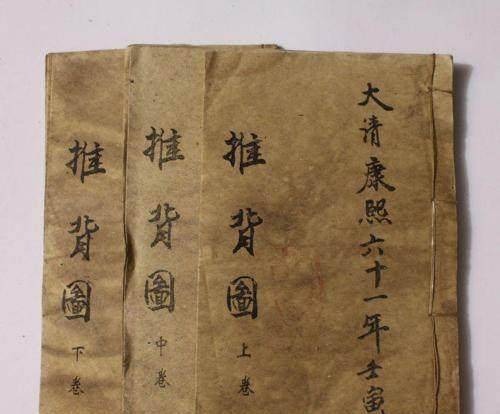 大清康熙六十一年壬寅
推背圖
上卷
推背圖
中卷
推背圖
下卷